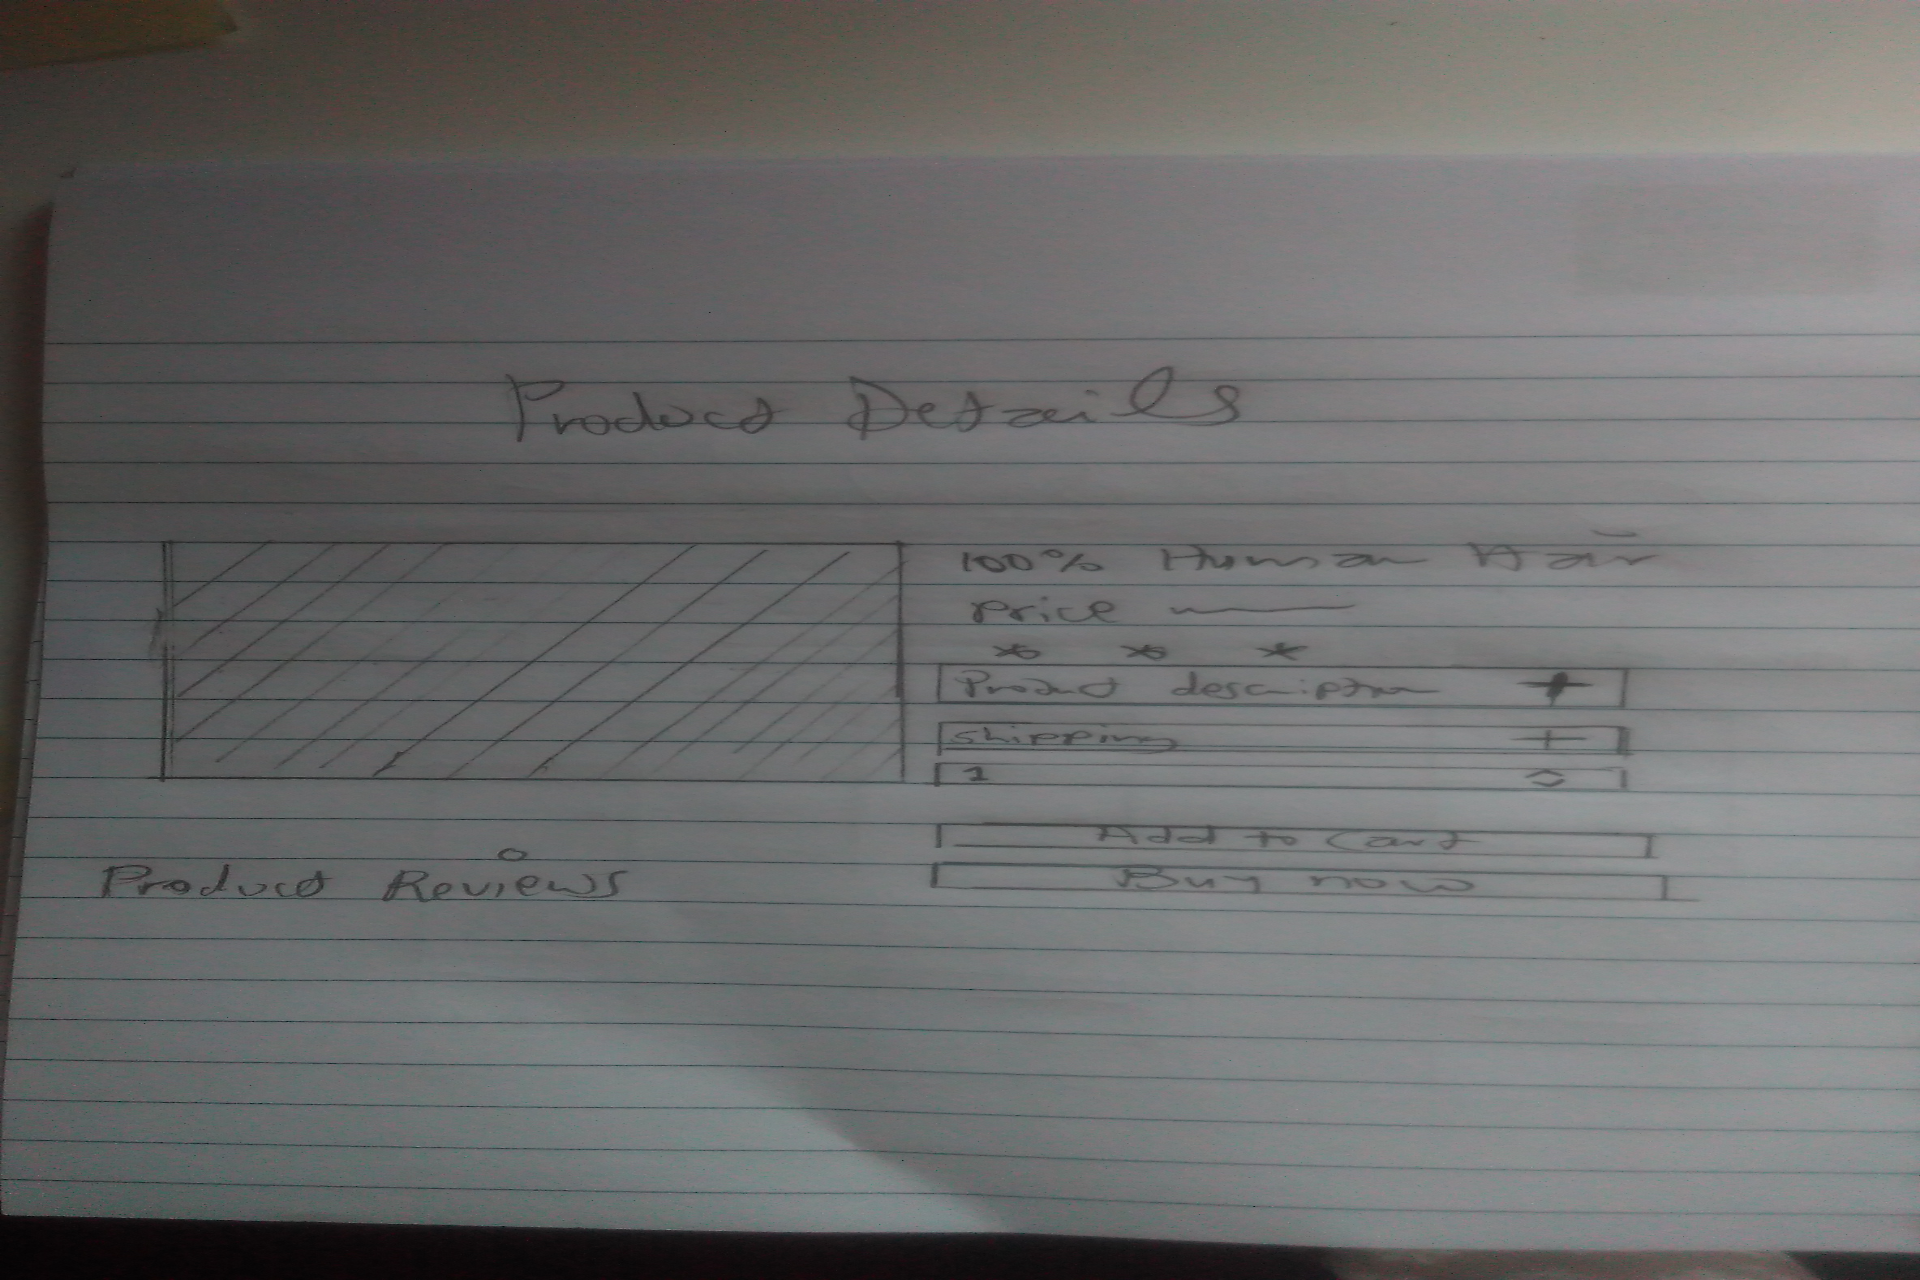 Product Details
100% Human Hair
price
* * *
Product description +
Shipping +
1
Add to Cart
Buy now
Product Reviews